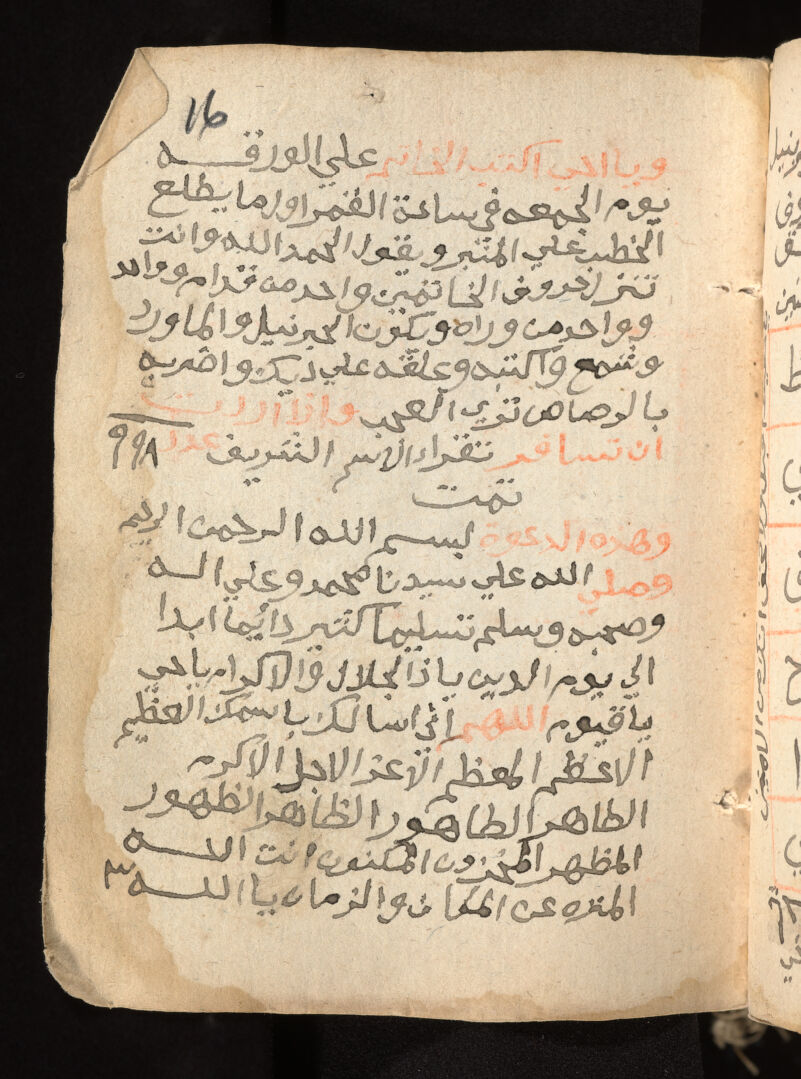 16
ويا اخي اكتب الخاتم علي الورقه
يوم الجمعه في ساعة القمر اول ما يطلع
الخطيب علي المنبر ويقول الحمد الله وانت
تنزل حروف الخاتمين واحد من قدام وواحد
وواحد من وراه ويكون الحبر نيل والماورد
وشمع واكتبه وعلقه علي ديك واضربه
بالرصاص تري العجب واذا اردت
ان تسافر تقراء الاسم الشريف عدد ٩٩٨
تمت
وهذه الدعوة بسم الله الرحمن الرحيم
وصلي الله علي سيدنا محمد وعلي اله
وصحبه وسلم تسليما كثير دائيما ابدا
الي يوم الدين يا ذا الجلال والاكرام يا حي
يا قيوم اللهم اني اسالك باسمك العظيم
الاعظم المعظم الاعز الاجل الاكرم
الطاهر الطاهور الظاهر الظهور
المظهر المخزون المكنون انت الله
المنزه عن المكان والزمان يا الله ٣